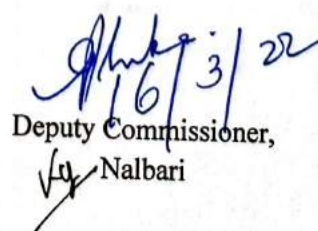 16/3/22
Deputy Commissioner,
Nalbari